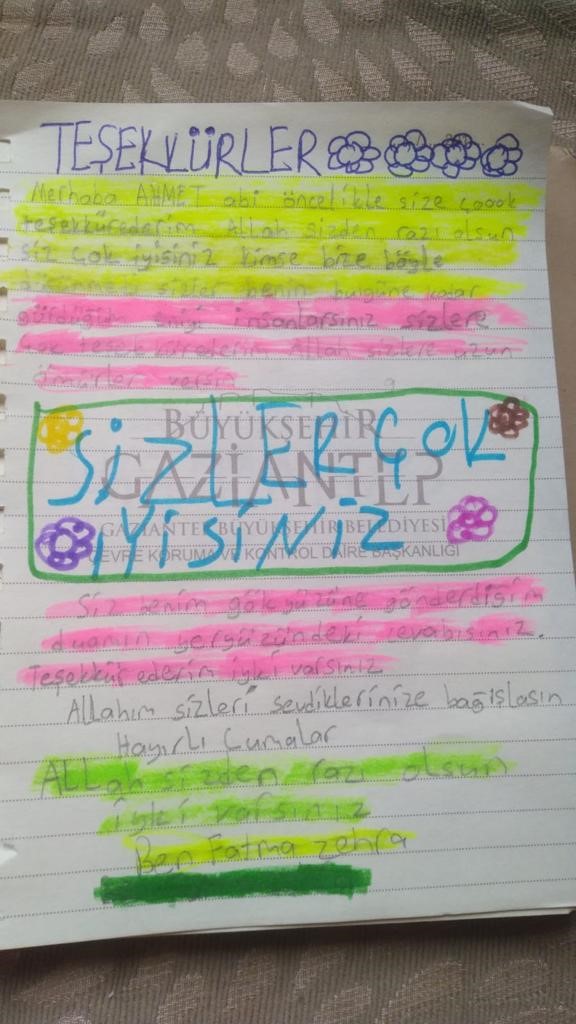 TEŞEKKÜRLER
Merhaba AHMET abi öncelikle size çoook
teşekkürederim Allah sizden razı olsun
siz çok iyisiniz kimse bize böyle
düşünmedi sizler benim bugüne kadar
gördüğüm eniyi insanlarsınız sizlere
çok teşekkürederim Allah sizlere uzun
ömürler versin
BÜYÜKŞEHİR
GAZİANTEP
GAZİANTEP BÜYÜKŞEHİR BELEDİYESİ
ÇEVRE KORUMA VE KONTROL DAİRE BAŞKANLIĞI
SİZLER ÇOK
iYİSİNİZ
Siz benim gökyüzüne gönderdiğim
duamın yeryüzündeki cevabısınız.
Teşekkür ederim iyki varsınız
Allahım sizleri sevdiklerinize bağışlasın
Hayırlı Cumalar
ALLah sizden razı olsun
iyki varsınız
Ben Fatma zehra